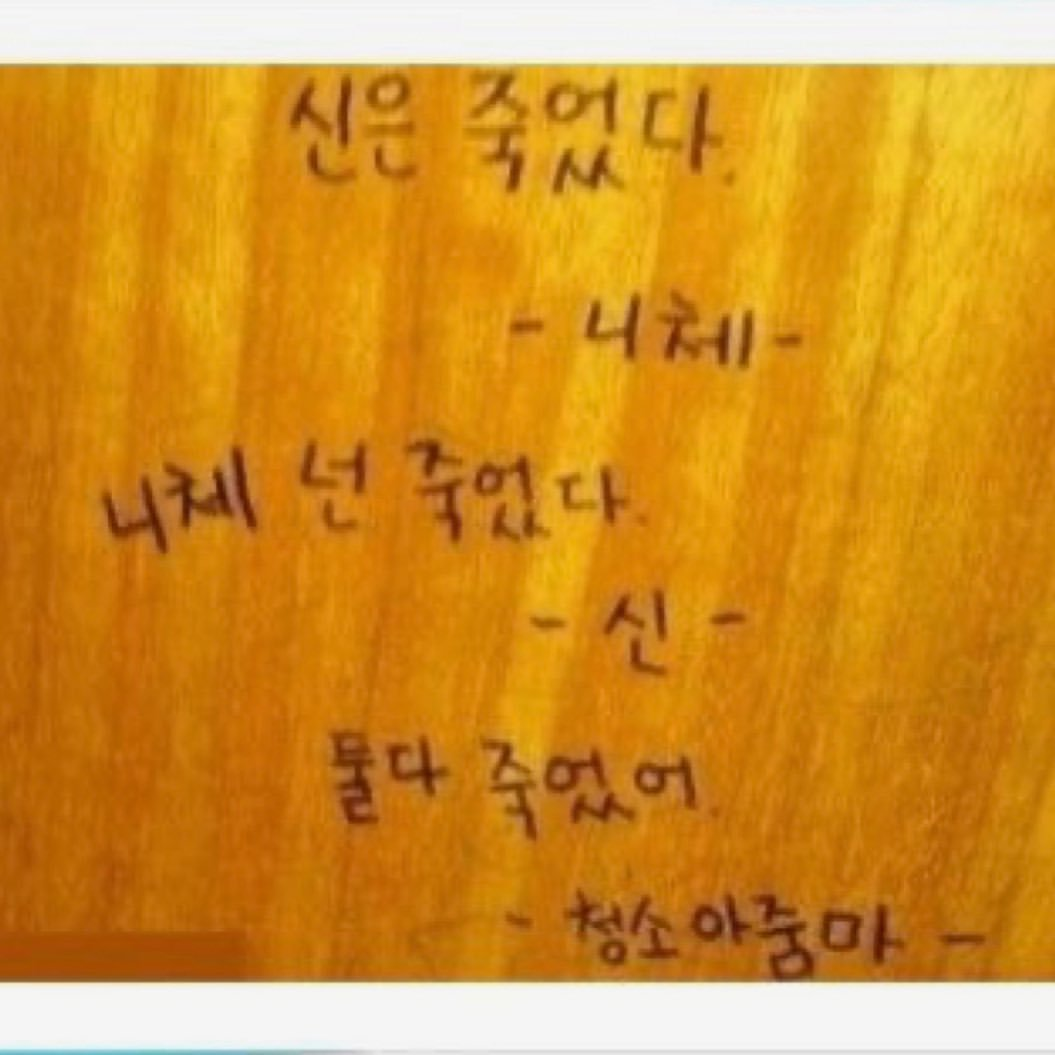 신은 죽었다.
- 니체 -
니체 넌 죽었다.
- 신 -
둘다 죽었어.
- 청소아줌마 -